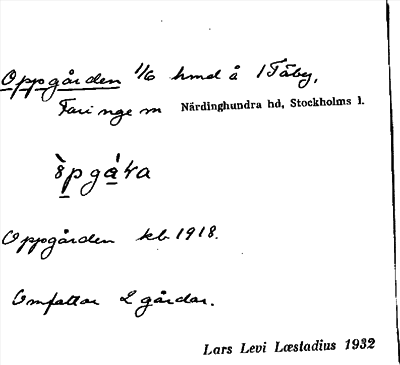 Oppgården 1/6 hmd å 1 Täby,
Faringe sn Närdinghundra hd, Stockholms l.
Oppgården kb 1918.
Omfattar 2 gårdar.
Lars Levi Læstadius 1932